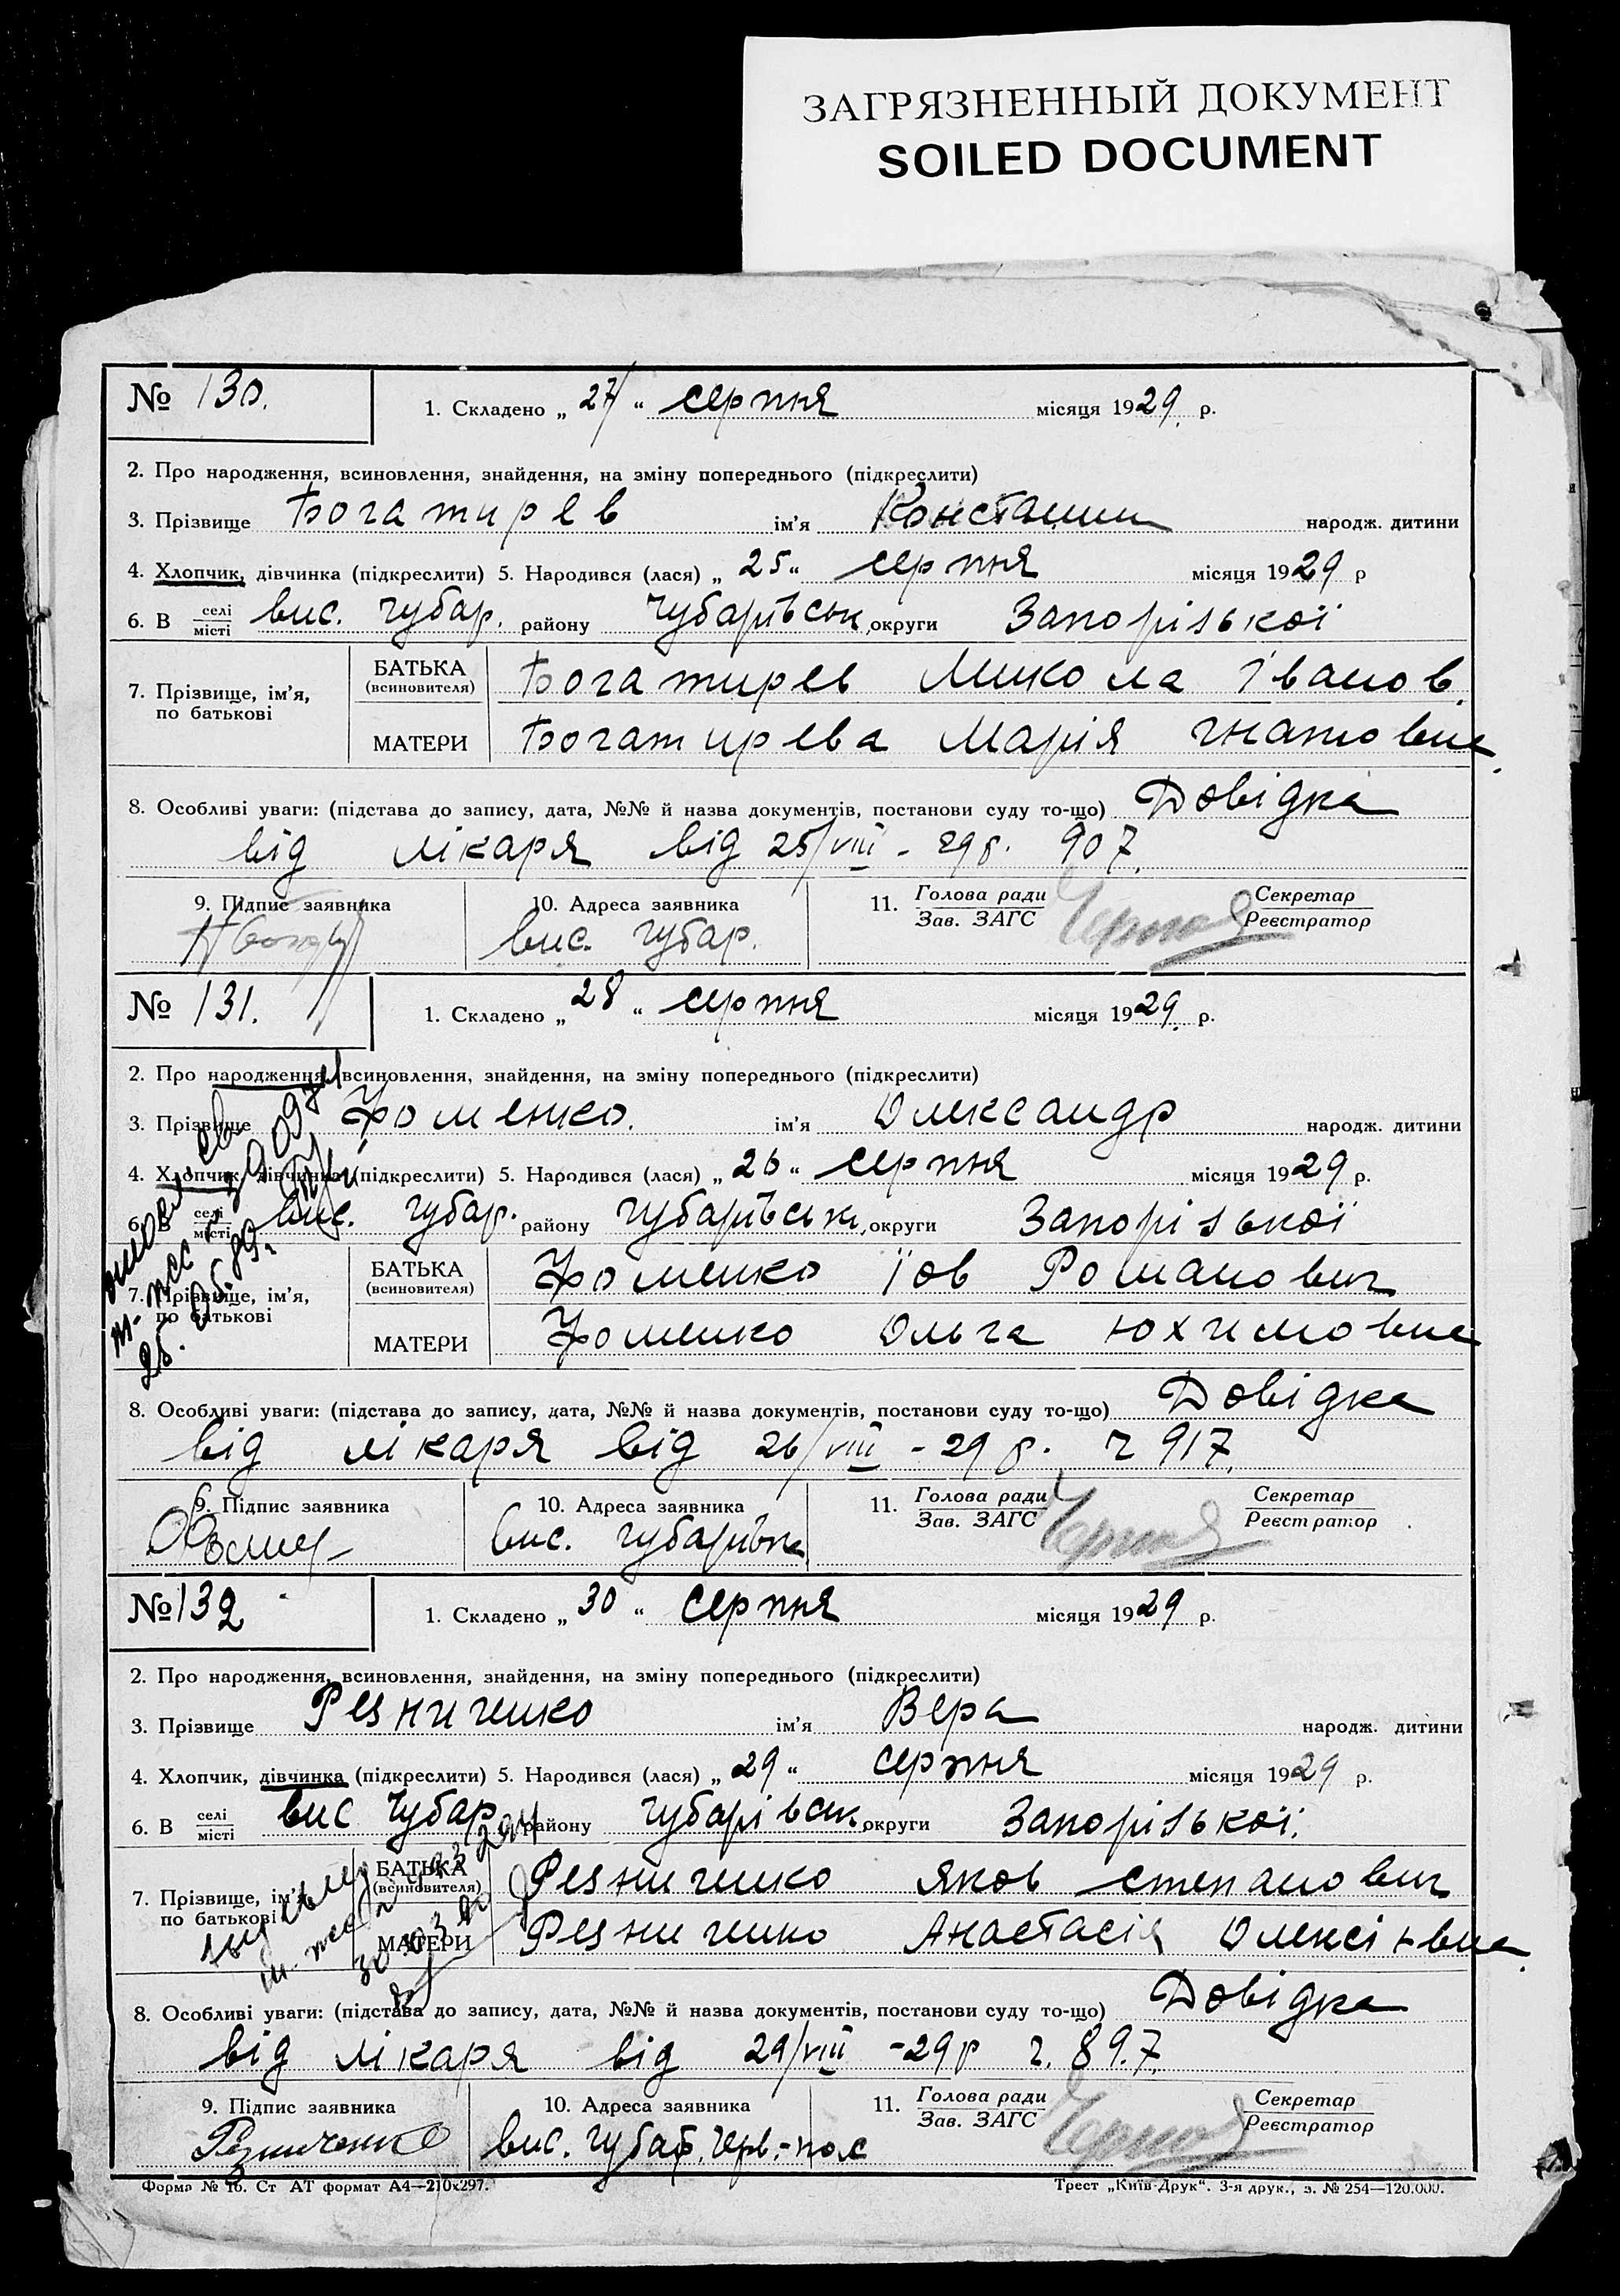 ЗАГРЯЗНЕННЫЙ ДОКУМЕНТ
SOILED DOCUMENT
№ 130.
1. Складено „ 27 “ серпня місяця 1929. р.
2. Про народження, всиновлення, знайдення, на зміну попереднього (підкреслити)
3. Прізвище Богатирев ім’я Констацин народж. дитини
4. Хлопчик, дівчинка (підкреслити) 5. Народився (лася) „ 25 “ серпня місяця 1929 р
6. В селі місті вис. Чубар. району Чубарівськ. округи Запорізької
7. Прізвище, ім’я, по батькові
БАТЬКА (всиновителя) Богатирев Микола Іванов.
МАТЕРИ Богатирева Марія Гнатовна
8. Особливі уваги: (підстава до запису, дата, №№ й назва документів, постанови суду то-що) Довідка
від лікаря від 25/VIII - 29 р. 907.
9. Підпис заявника
10. Адреса заявника
11. Голова ради Зав. ЗАГС
Секретар Реєстратор
вис. Чубар.
№ 131.
1. Складено „ 28 “ серпня місяця 1929. р.
2. Про народження, всиновлення, знайдення, на зміну попереднього (підкреслити)
3. Прізвище Фоменко. ім’я Олександр народж. дитини
4. Хлопчик, дівчинка (підкреслити) 5. Народився (лася) „ 26 “ серпня місяця 1929 р.
6. В селі місті вис. Чубар. району Чубарівськ. округи Запорізької
7. Прізвище, ім’я, по батькові
БАТЬКА (всиновителя) Фоменко Їов Романович
МАТЕРИ Фоменко Ольга Юхимовна
8. Особливі уваги: (підстава до запису, дата, №№ й назва документів, постанови суду то-що) Довідка
від лікаря від 26/VIII - 29 р. ч 917.
9. Підпис заявника
10. Адреса заявника
11. Голова ради Зав. ЗАГС
Секретар Реєстратор
вис. Чубарівка
№ 132
1. Складено „ 30 “ серпня місяця 1929 р.
2. Про народження, всиновлення, знайдення, на зміну попереднього (підкреслити)
3. Прізвище Резниченко ім’я Вера народж. дитини
4. Хлопчик, дівчинка (підкреслити) 5. Народився (лася) „ 29 “ серпня місяця 1929 р.
6. В селі місті вис Чубар. району Чубарівськ. округи Запорізької.
7. Прізвище, ім’я, по батькові
БАТЬКА (всиновителя) Резниченко Яков Степанович
МАТЕРИ Резниченко Анастасія Олексіївна
8. Особливі уваги: (підстава до запису, дата, №№ й назва документів, постанови суду то-що) Довідка
від лікаря від 29/VIII - 29 р ч. 897.
9. Підпис заявника
10. Адреса заявника
11. Голова ради Зав. ЗАГС
Секретар Реєстратор
Резниченко
вис. Чубар. Черв.-пол
Форма № 1б. Ст АТ формат А4—210х297.
Трест „Київ-Друк“. 3-я друк., з. № 254—120.000.